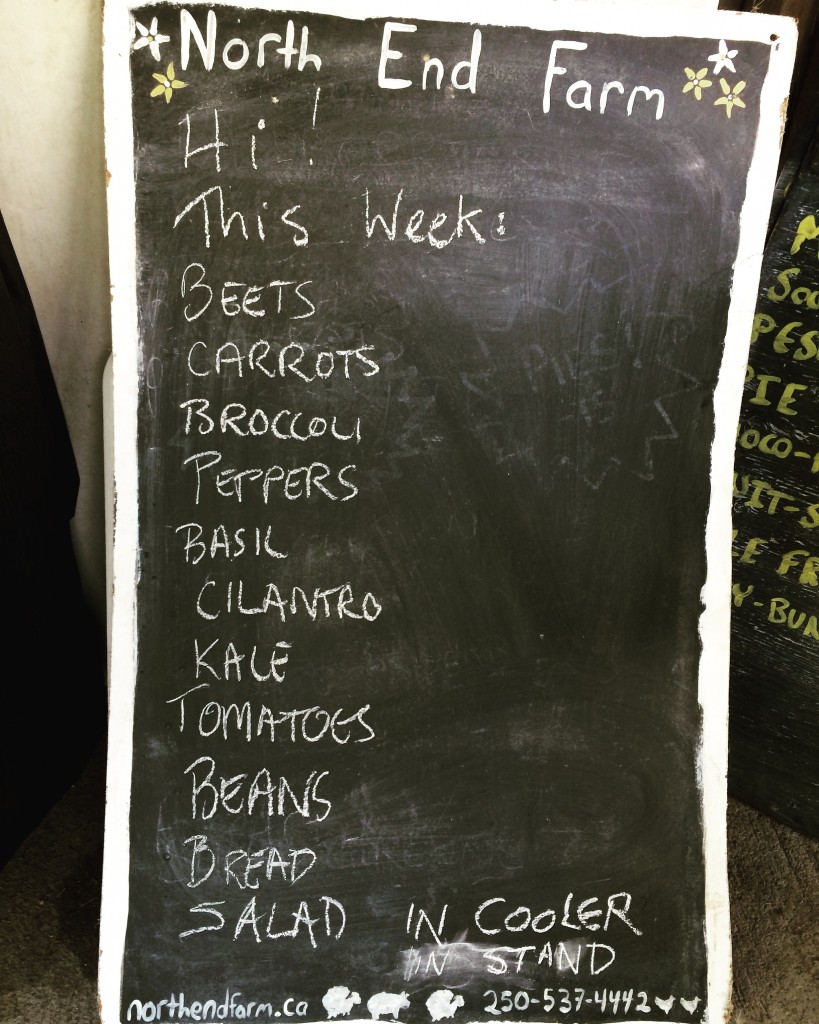 North End Farm
Hi!
This Week:
BEETS
CARROTS
BROCCOLI
PEPPERS
BASIL
CILANTRO
KALE
TOMATOES
BEANS
BREAD
SALAD IN COOLER
IN STAND
northendfarm.ca 250-537-4442